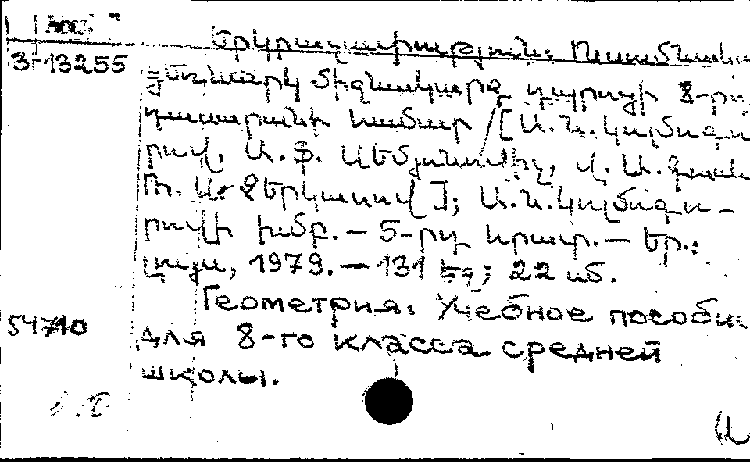 Երկրաչափություն: Ուսումնական
3-13255
ձեռնարկ միջնակարգ դպրոցի 8-րդ
դասարանի համար [Ա.Ն.Կոլմոգո-
րով, Ա.Ֆ. Սեմյոնովիչ,
Ռ.Ա. Չերկասով]; Ա.Ն.Կոլմոգո-
րովի խմբ. – 5-րդ հրատ. – Եր.:
Լույս, 1979. – 131 էջ; 22 սմ.
Геометрия: Учебное пособи
54710
для 8-го класса средней
школы.